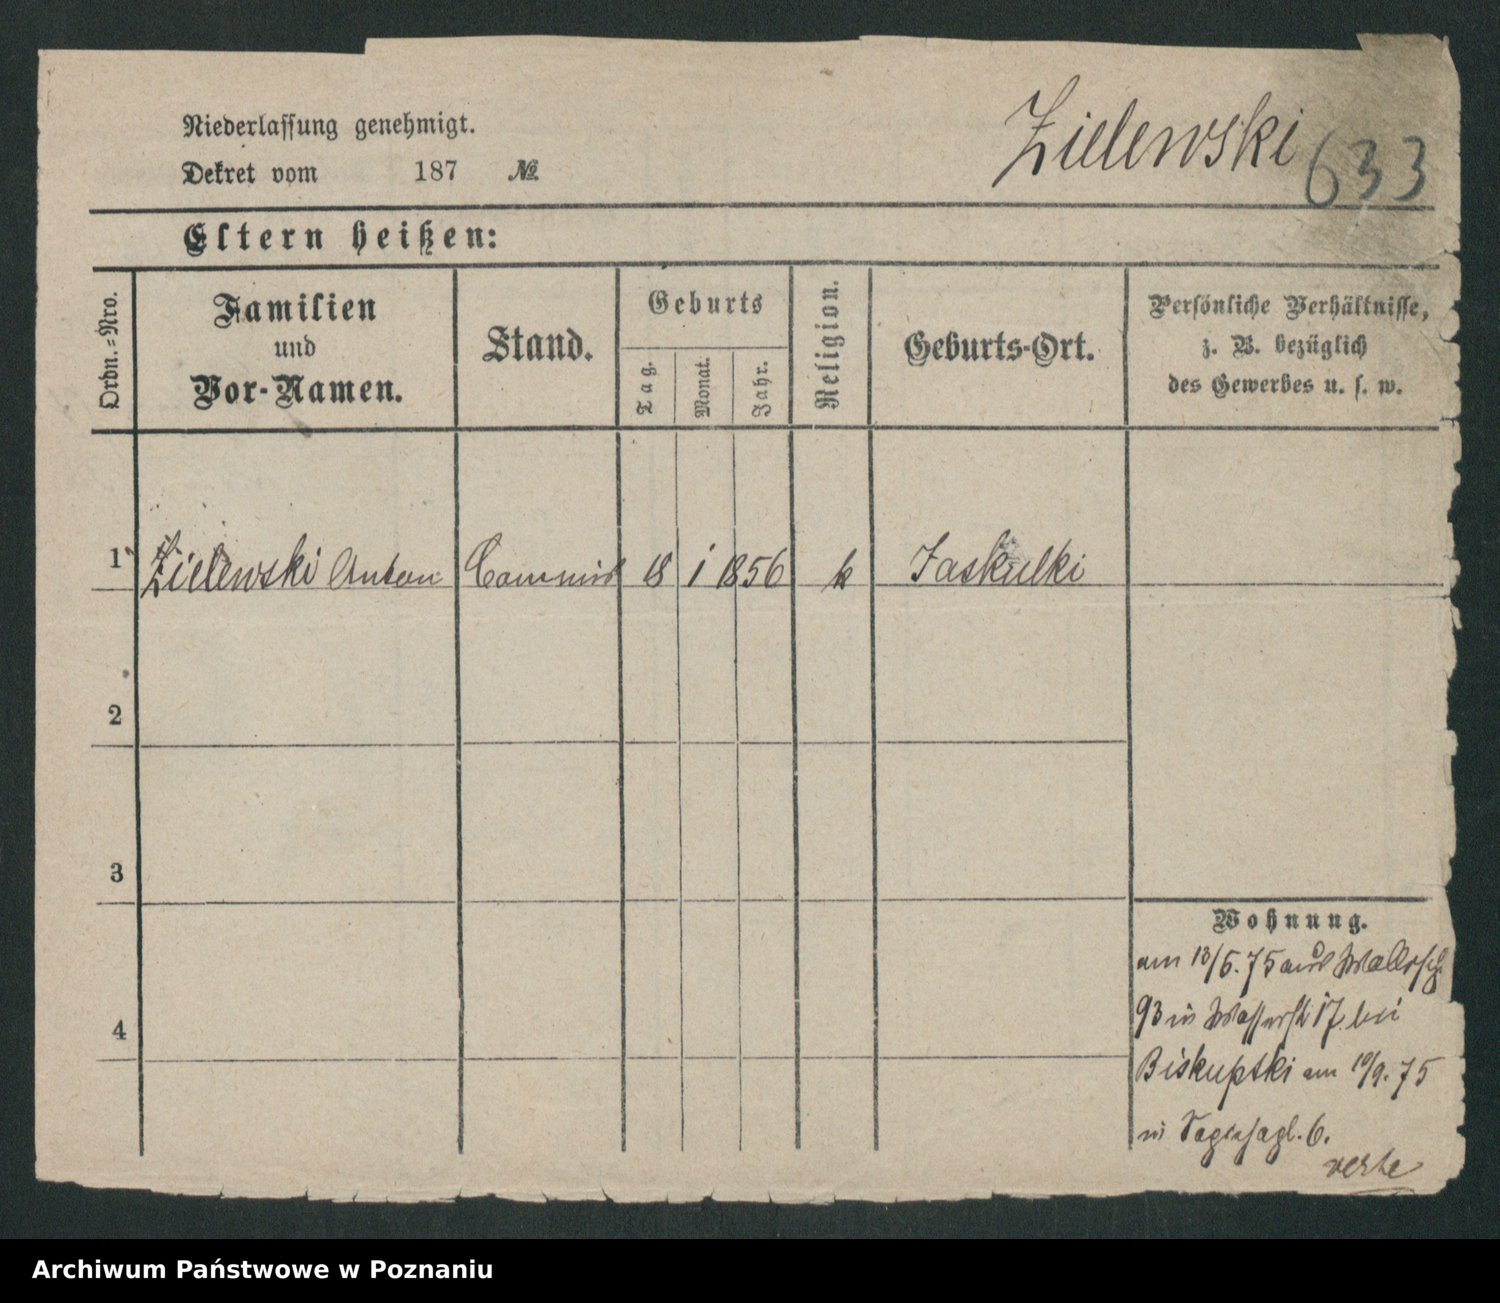 Niederlassung genehmigt.
Dekret vom 187 №
Zielewski 633
Eltern heißen:
Ordn.-Nro.
Familien
und
Vor-Namen.
Stand.
Geburts
Tag.
Monat.
Jahr.
Religion.
Geburts-Ort.
Persönliche Verhältnisse,
z. B. bezüglich
des Gewerbes u. s. w.
1 Zielewski Anton Commis 18 1 1856 k Jaskulki
2
3
4
Wohnung.
am 13/5. 75 aus
93 in Wasserstr 17 bei
Biskupski am 10/9. 75
in 6.
verte
Archiwum Państwowe w Poznaniu